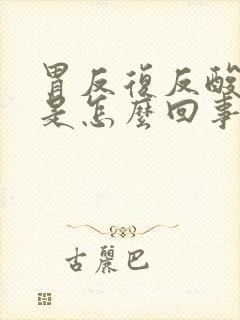 胃反復反酸
是怎麼回事
古麗巴